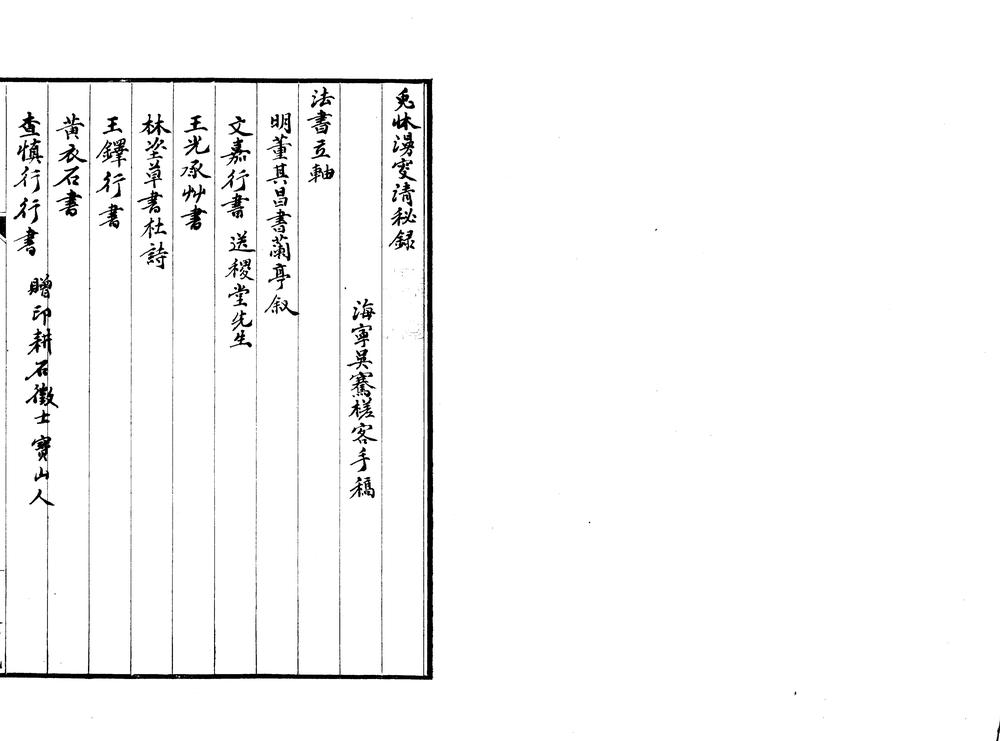 兎牀漫叟清秘録
海寧吳騫槎客手稿
法書立軸
明董其昌書蘭亭叙
文嘉行書 送稷堂先生
王光承艸書
林垐草書杜詩
王鐸行書
黃衣石書
查慎行行書 贈印耕石徵士寶山人